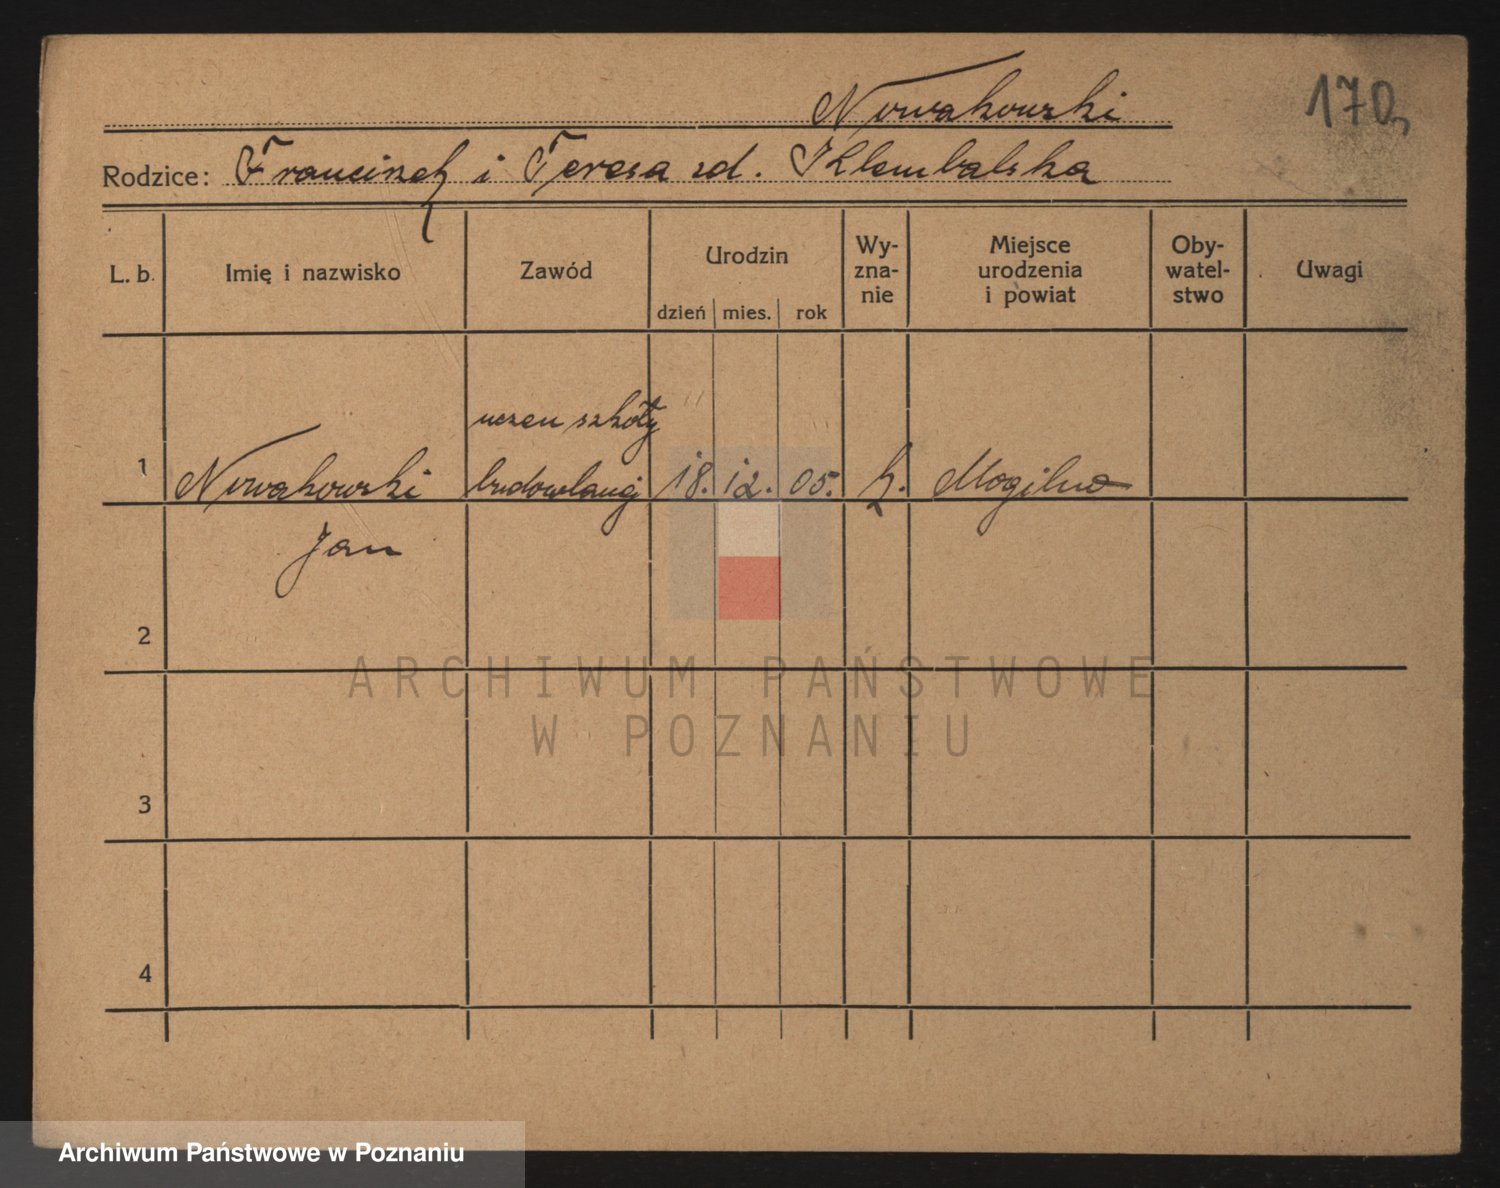 170
Nowakowski
Rodzice: Franciszek i Teresa zd. Klembalska
L. b. Imię i nazwisko Zawód Urodzin dzień mies. rok Wy-zna-nie Miejsce urodzenia i powiat Oby-watel-stwo Uwagi
uczeń szkoły
1 Nowakowski budowlanej 18. 12. 05. k. Mogilno
Jan
2
ARCHIWUM PAŃSTWOWE
W POZNANIU
3
4
Archiwum Państwowe w Poznaniu